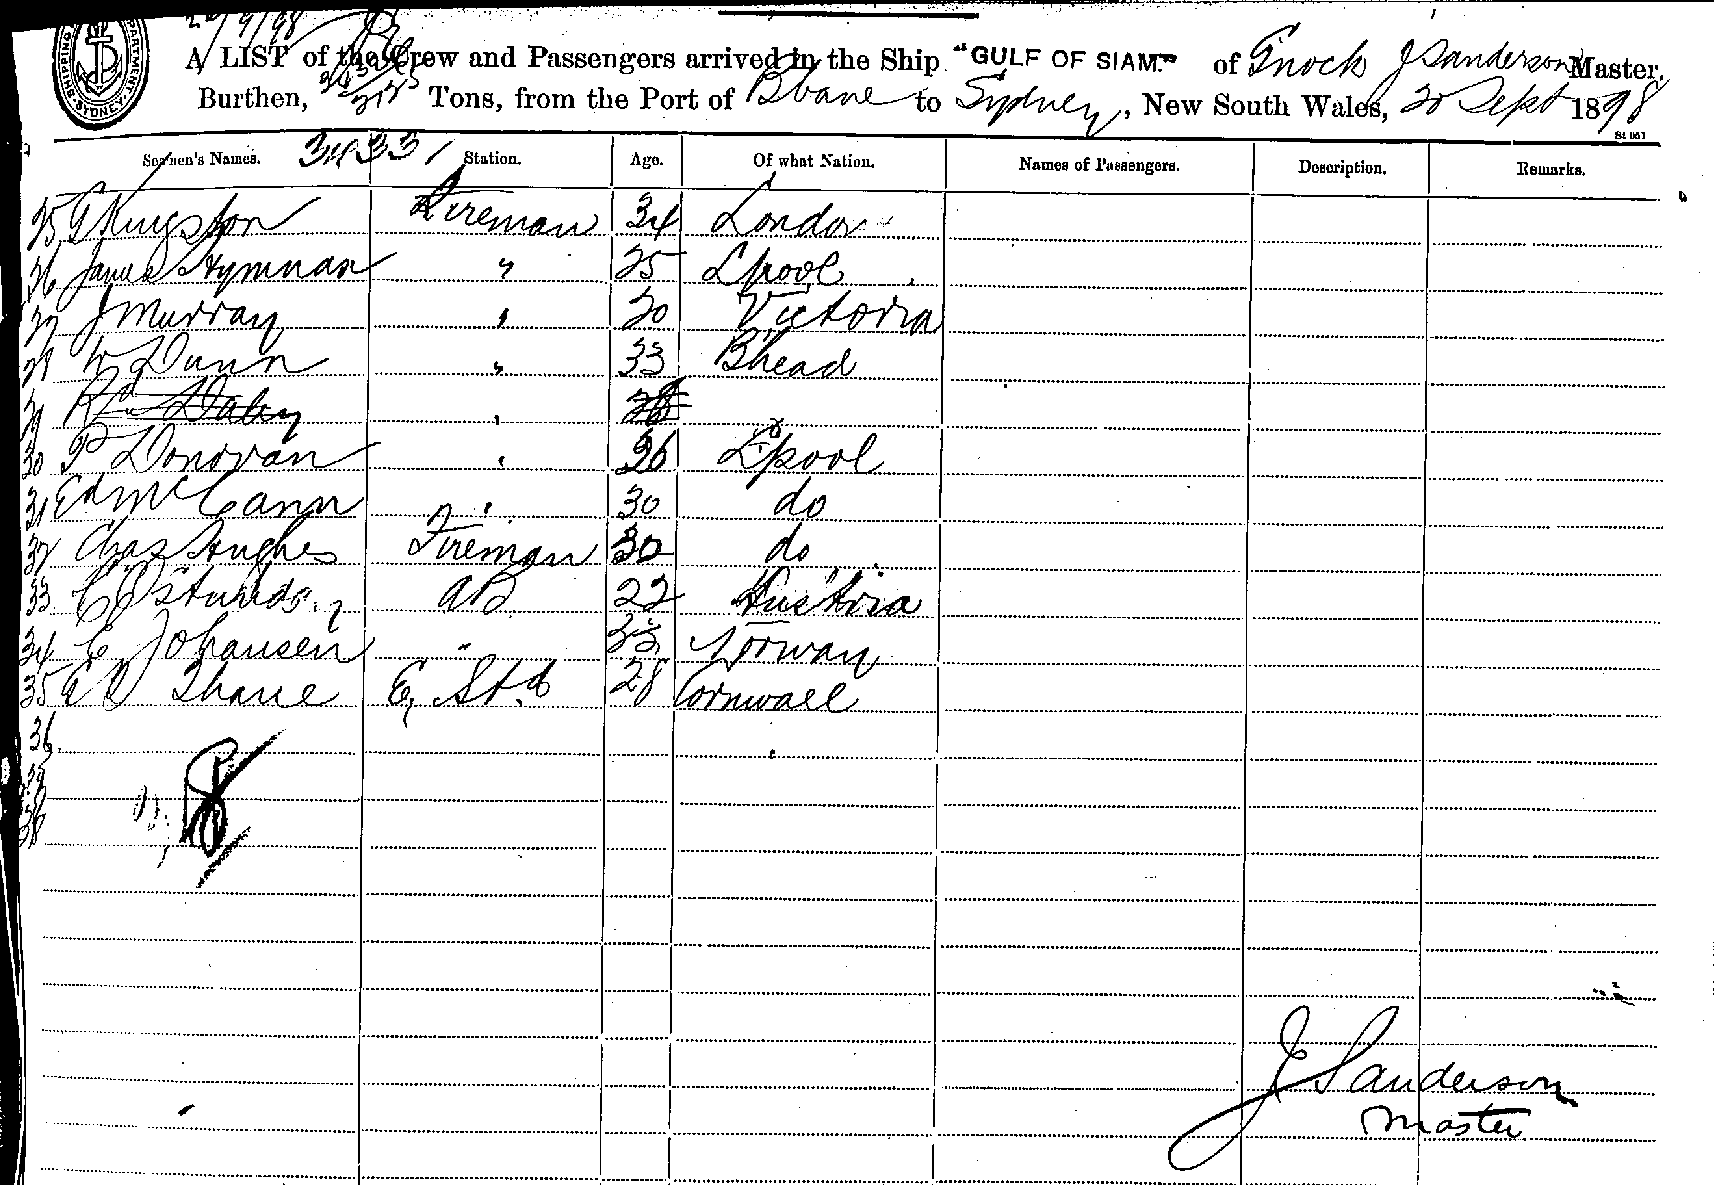 20/9/98
SHIPPING DEPARTMENT SYDNEY
A LIST of the Crew and Passengers arrived in the Ship "GULF OF SIAM." of Enock J Sanderson Master,
Burthen, Tons, from the Port of Bbane to Sydney, New South Wales, 20 Sept 1898
Seamen's Names. 3433 Station. Age. Of what Nation. Names of Passengers. Description. Remarks.
25 G Kingston Fireman 34 London
26 James Hymnan " 25 Lpool
27 J Murray " 30 Victoria
28 W Dunn " 33 Bhead
29 Rd Daley "
30 P Donovan " 36 Lpool
31 Ed McCann " 30 do
32 Chas Hughes Fireman 30 do
33 AB 22 Austria
34 C Johansen " 33 Norway
35 Thane E, Std 28 Cornwall
36
37
38
J Sanderson
Master